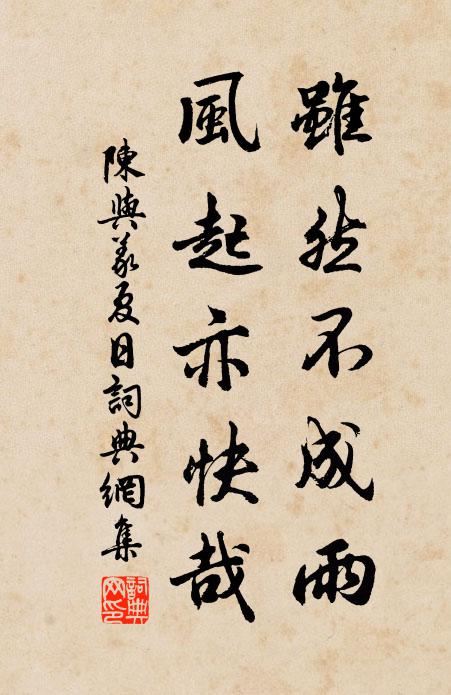 雖然不成雨
風起亦快哉
陳與義夏日詞典網集
詞典